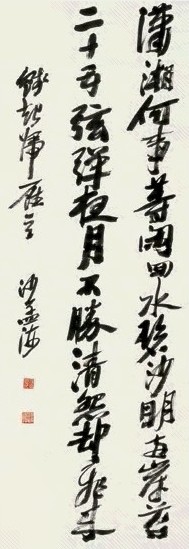 瀟湘何事等閑回水碧沙明兩岸苔
二十五弦彈夜月不勝清怨却飛來
錢起歸雁
沙孟海